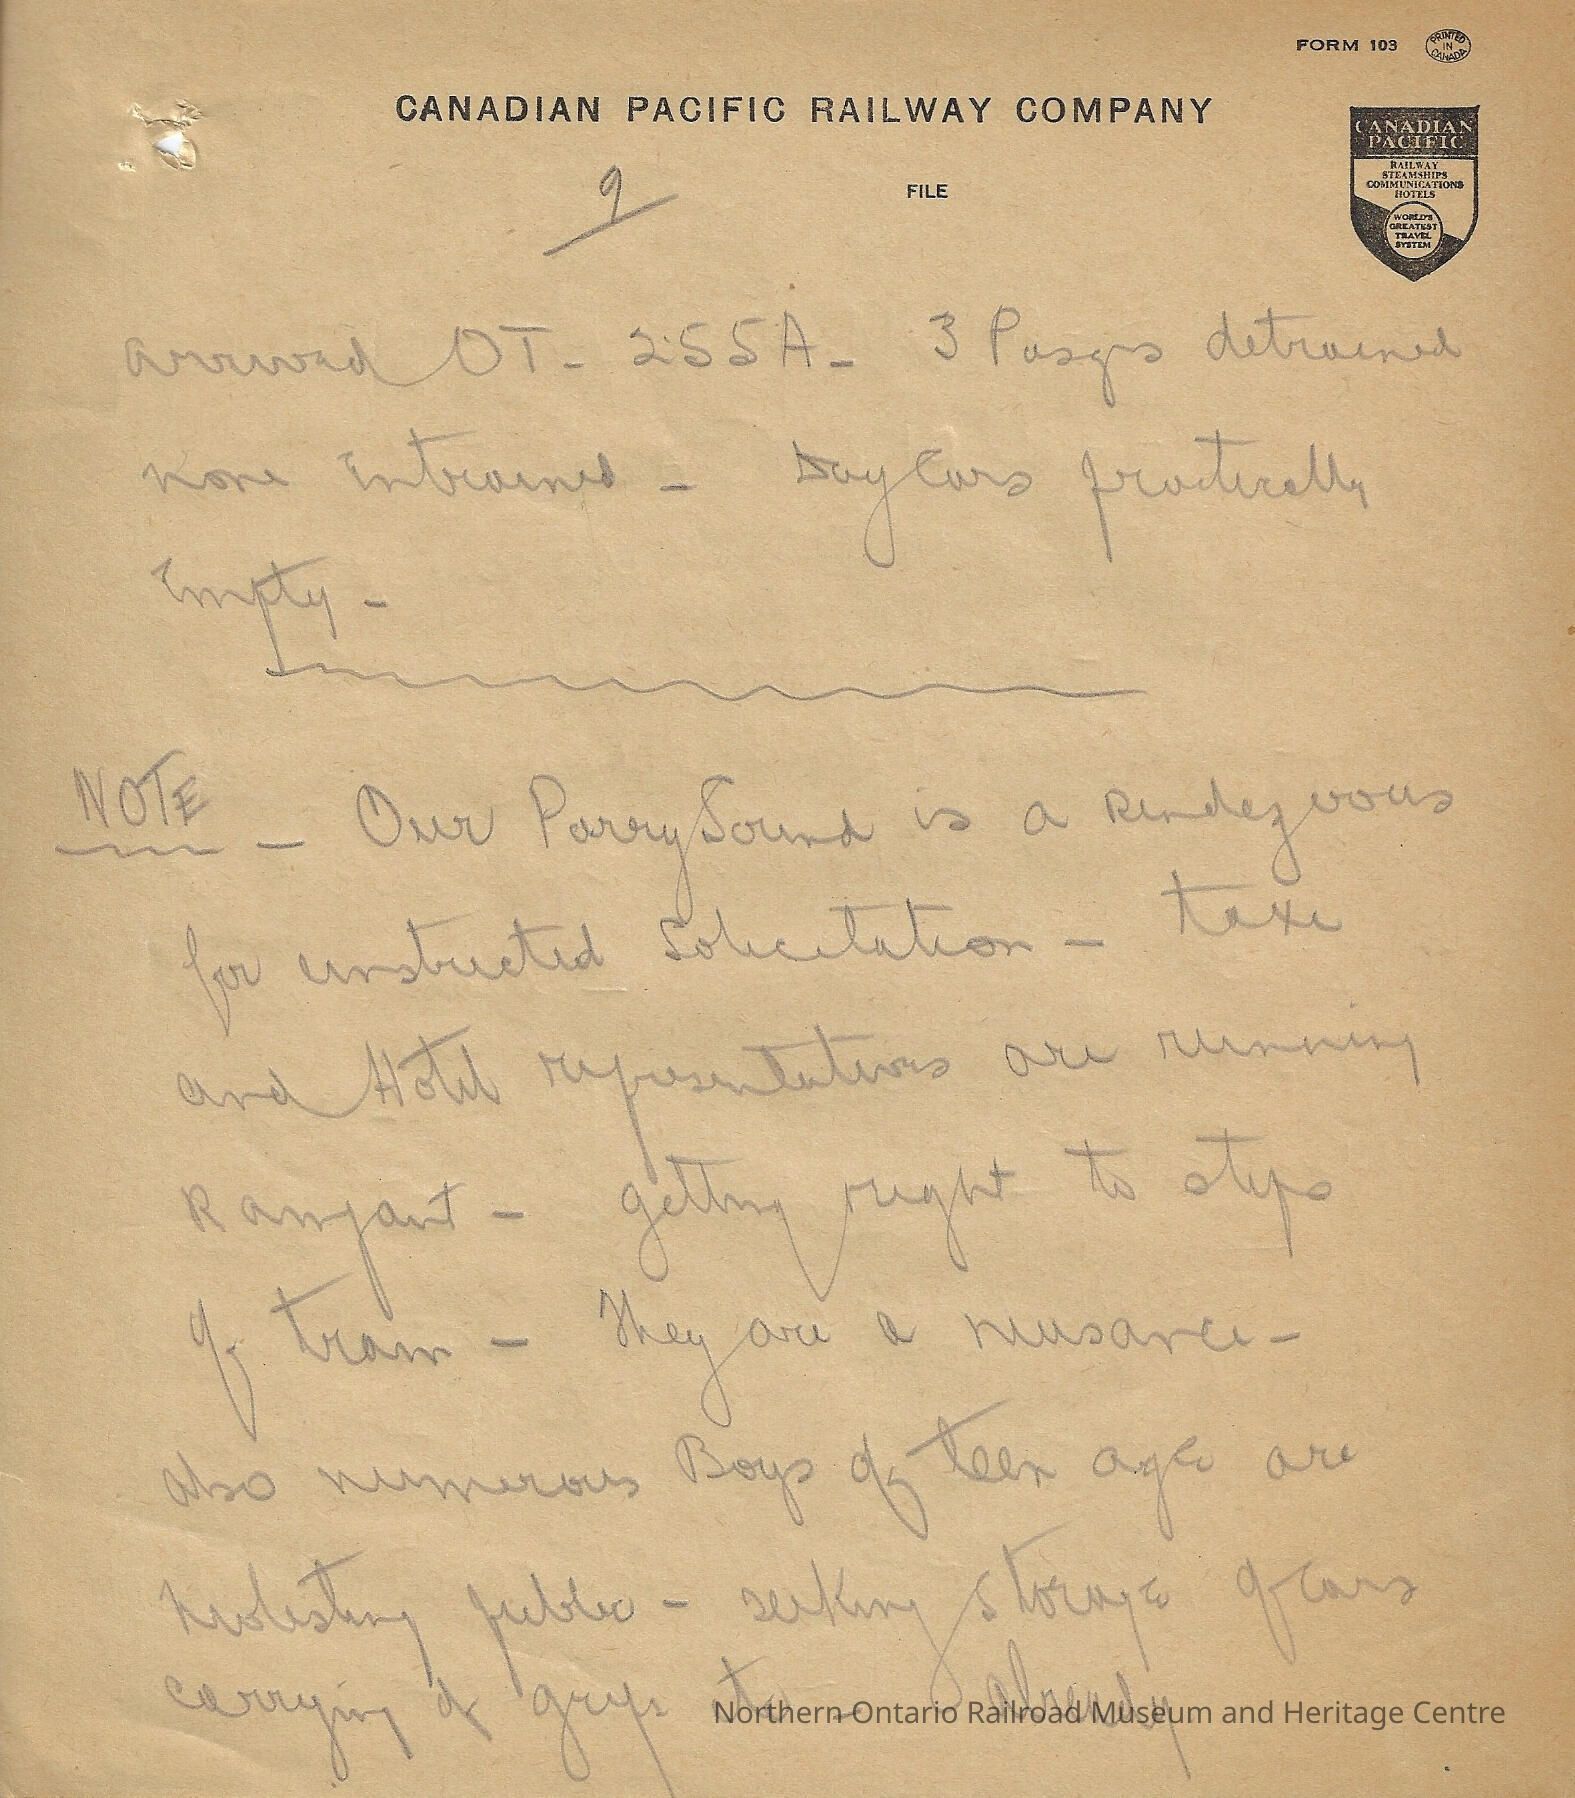 FORM 103 PRINTED IN CANADA
CANADIAN PACIFIC RAILWAY COMPANY
CANADIAN
PACIFIC
RAILWAY
STEAMSHIPS
COMMUNICATIONS
HOTELS
WORLD'S
GREATEST
TRAVEL
SYSTEM
9
FILE
arrived OT - 2:55A - 3 Pasgrs detrained
none Entrained - Day Cars practically
Empty -
NOTE - Our Parry Sound is a Rendezvous
for unstructed Solicitation - taxi
and Hotel representatives are running
Rampant - getting right to steps
of train - They are a nuisance -
also numerous Boys of teen age are
molesting public - seeking storage of cars
carrying of grips etc - already
Northern Ontario Railroad Museum and Heritage Centre